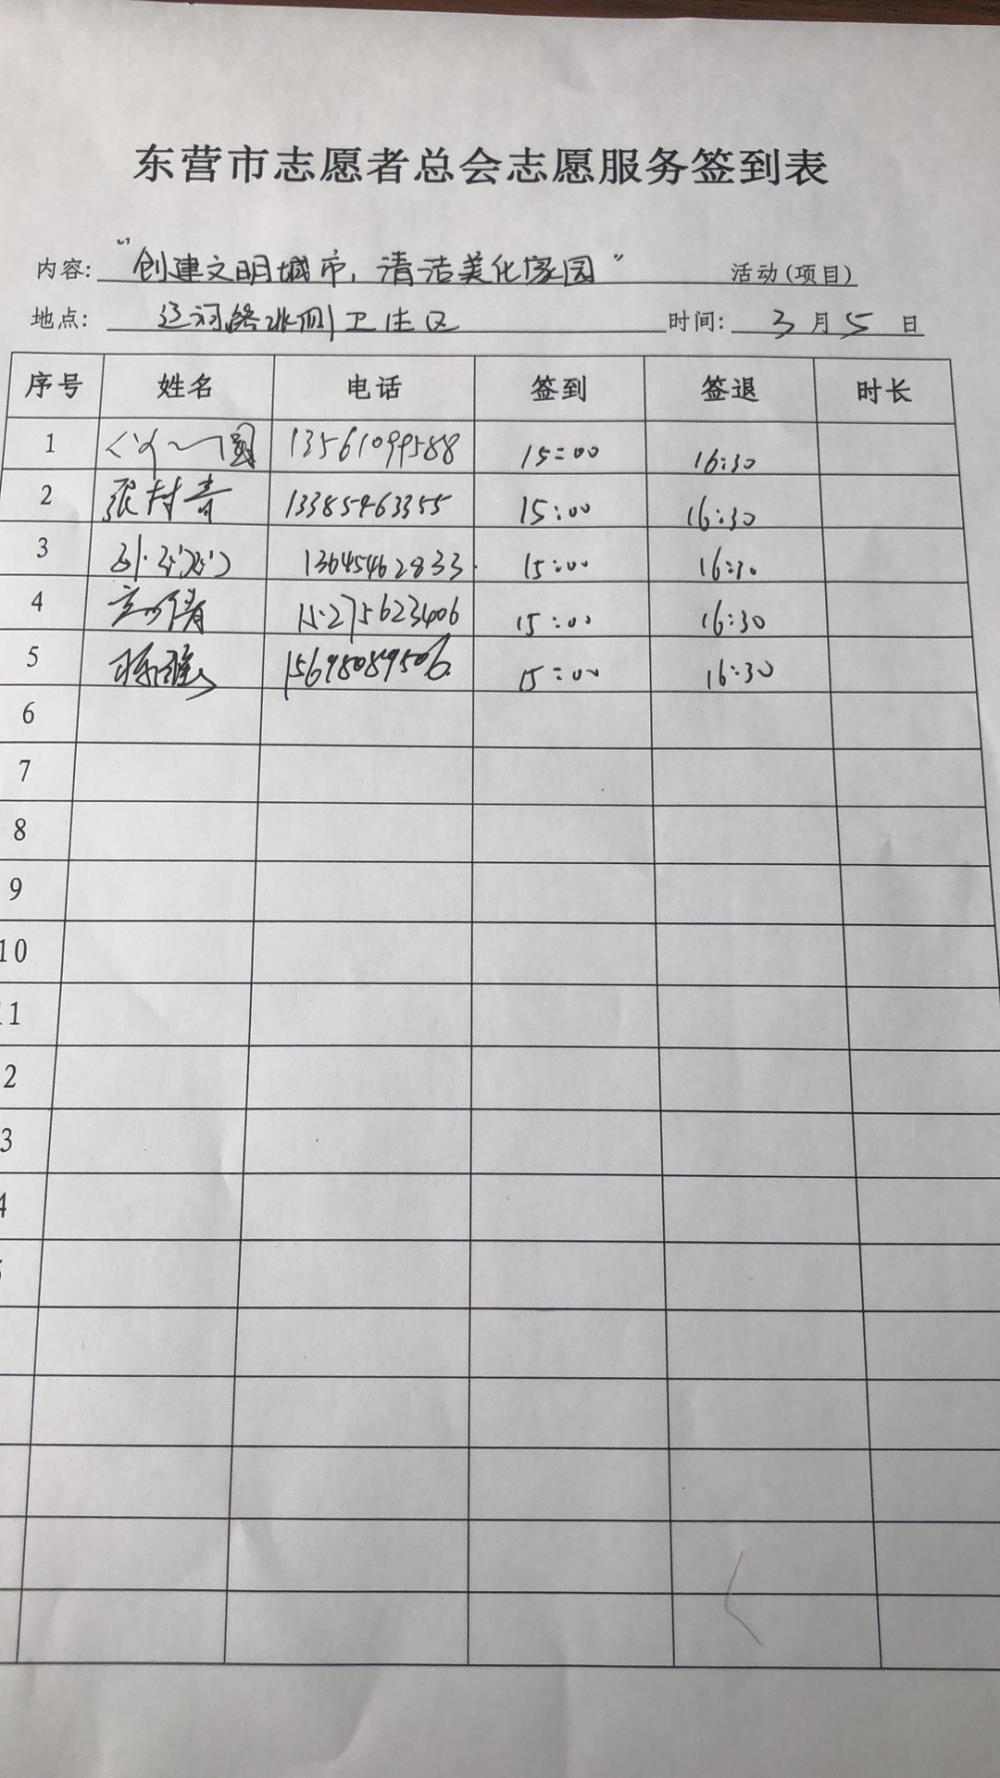 东营市志愿者总会志愿服务签到表
内容: "创建文明城市,清洁美化家园" 活动(项目)
地点: 辽河路北侧卫生区 时间: 3月5日
序号 姓名 电话 签到 签退 时长
1 13561099588 15:00 16:30
2 张村青 13385463355 15:00 16:30
3 13645462833 15:00 16:30
4 15275623406 15:00 16:30
5 15:00 16:30
6
7
8
9
10
11
2
3
4
5